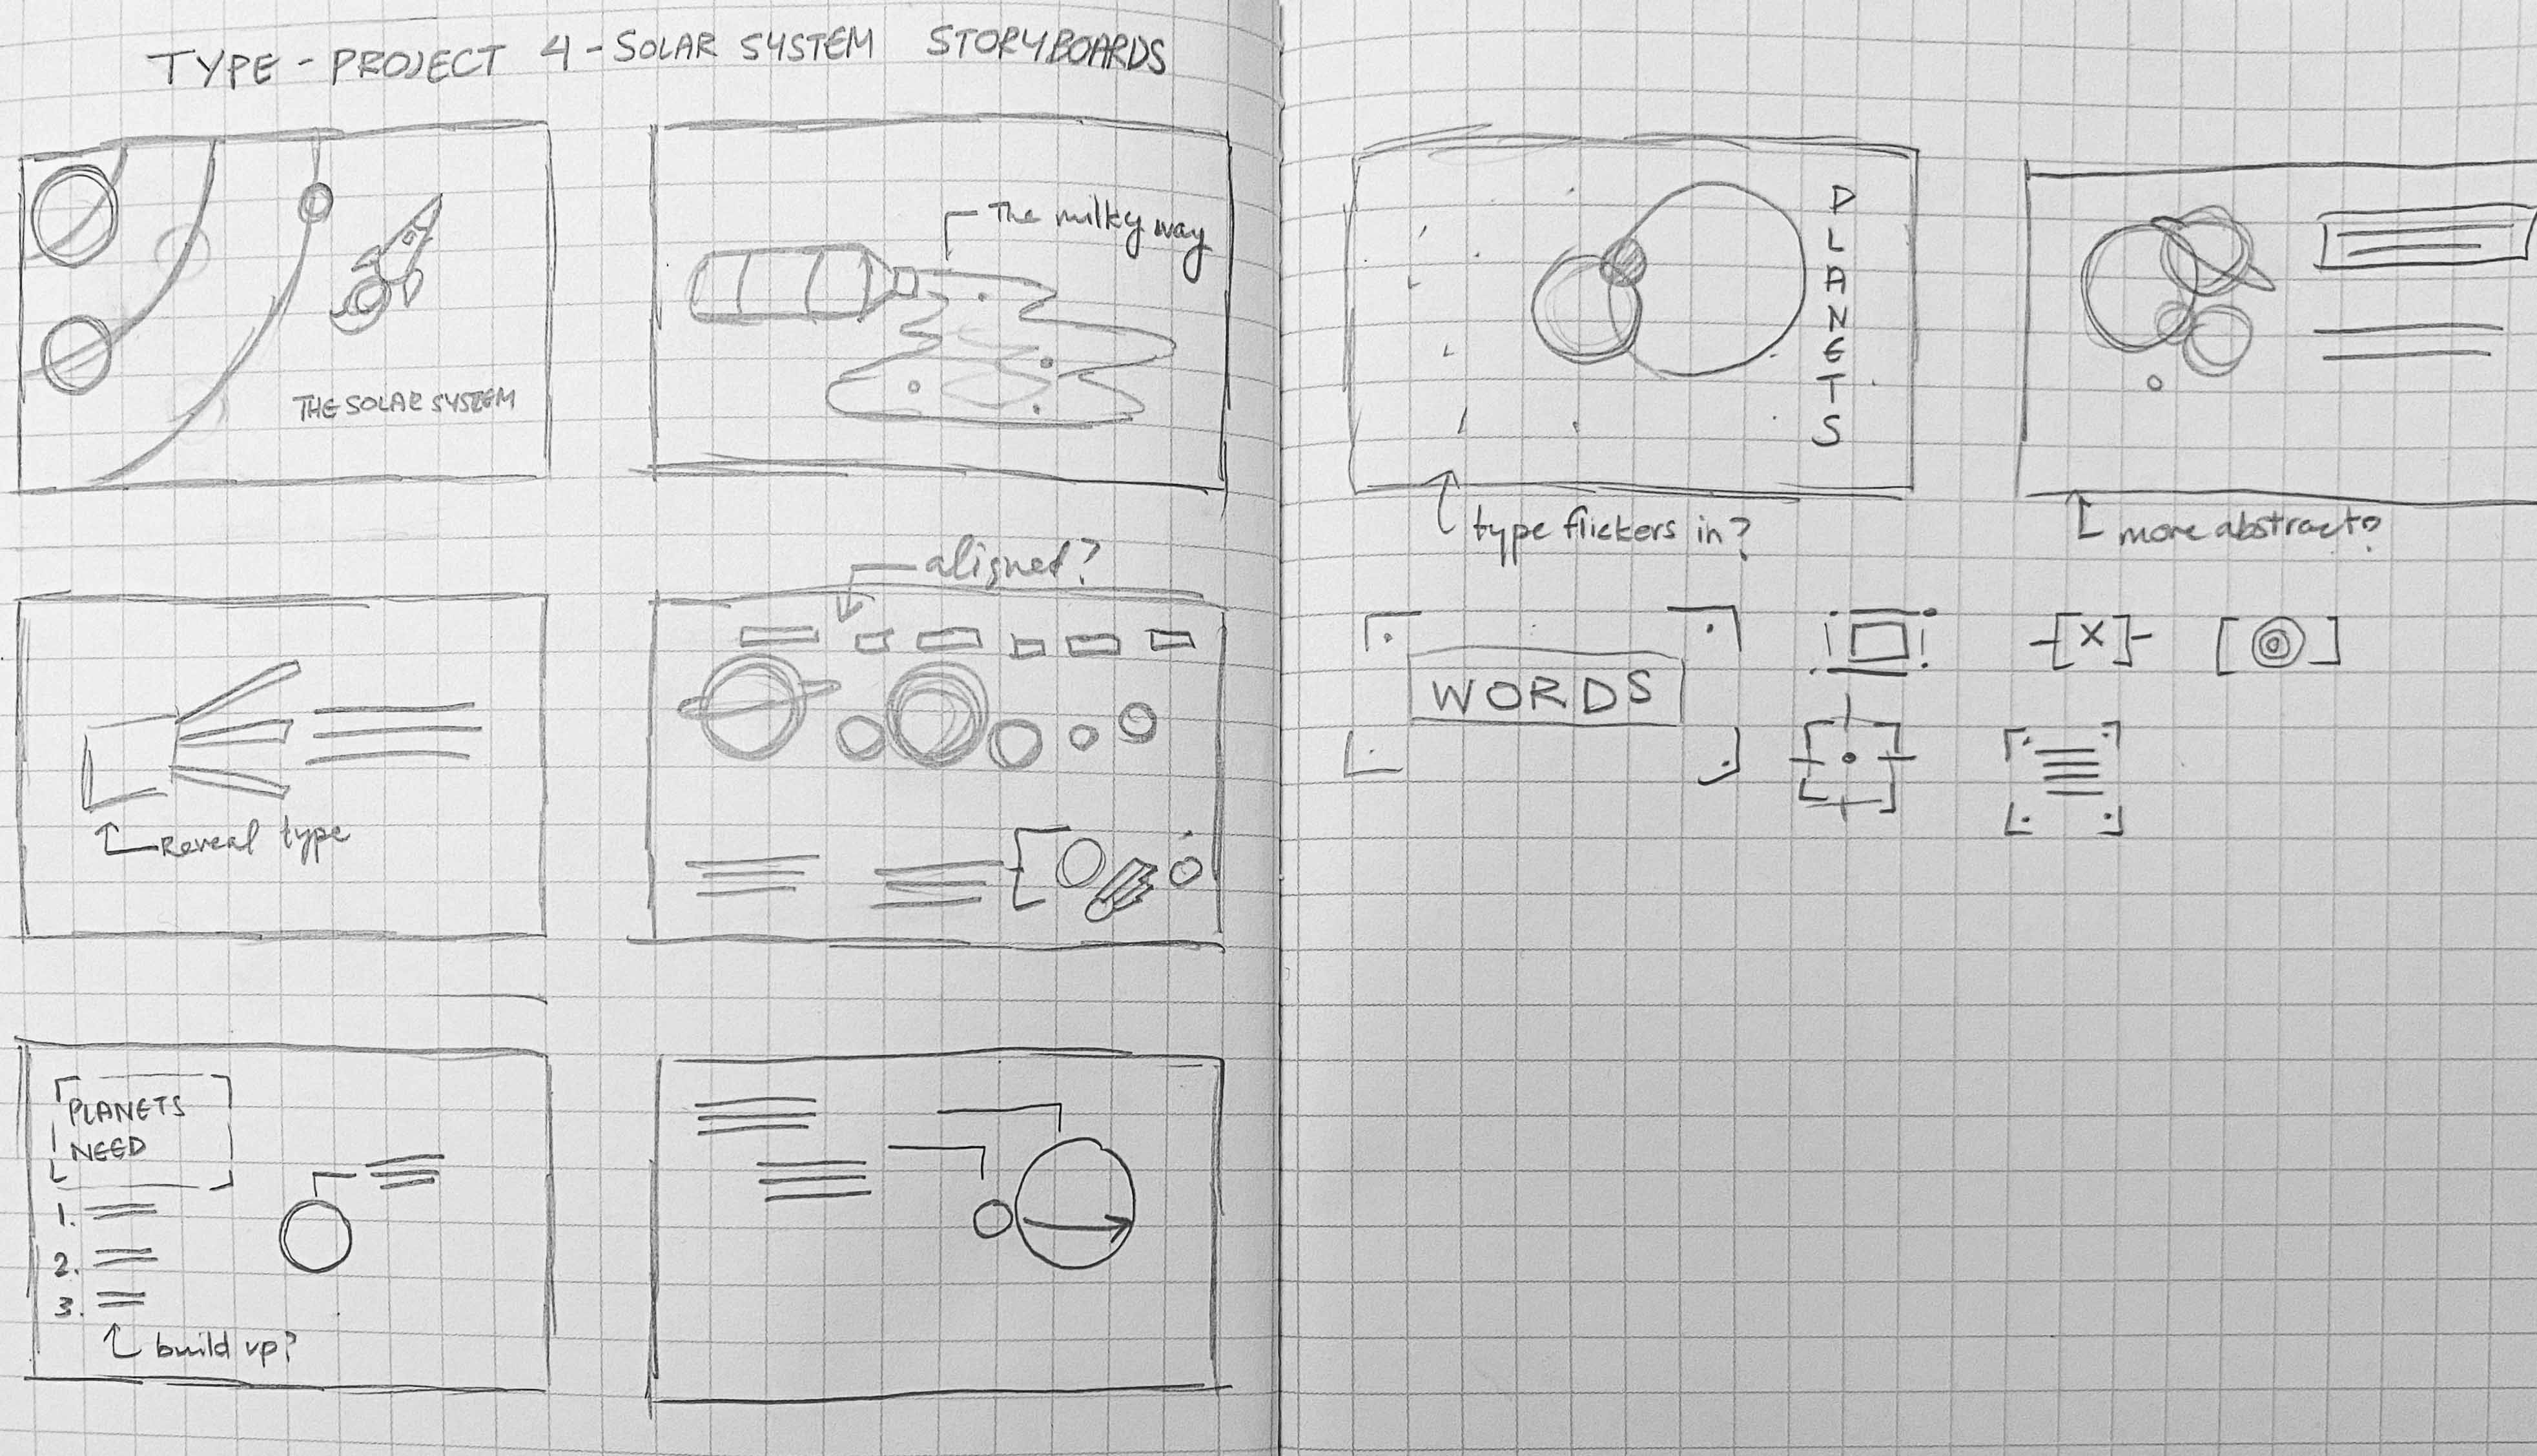 TYPE - PROJECT 4 - SOLAR SYSTEM STORYBOARDS
THE SOLAR SYSTEM
The milky way
Reveal type
aligned?
PLANETS
NEED
1.
2.
3.
build up?
PLANETS
type flickers in?
more abstract?
WORDS
X